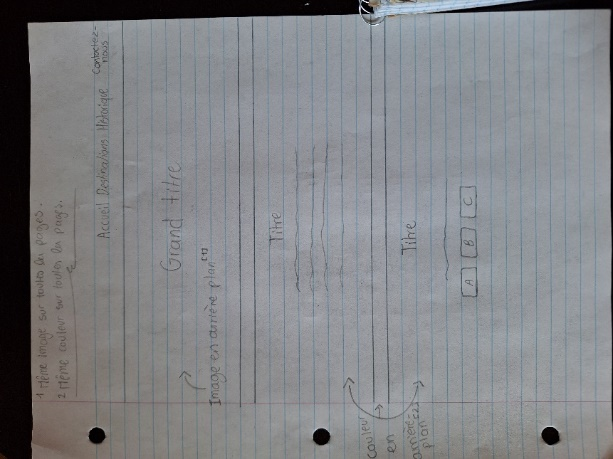 1 Même image sur toutes les pages.
2 Même couleur sur toutes les pages.
Accueil Destinations Historique Contactez-
nous
Grand titre
Image en arrière plan [1]
Titre
couleur
en
arrière-
plan [2]
Titre
A B C